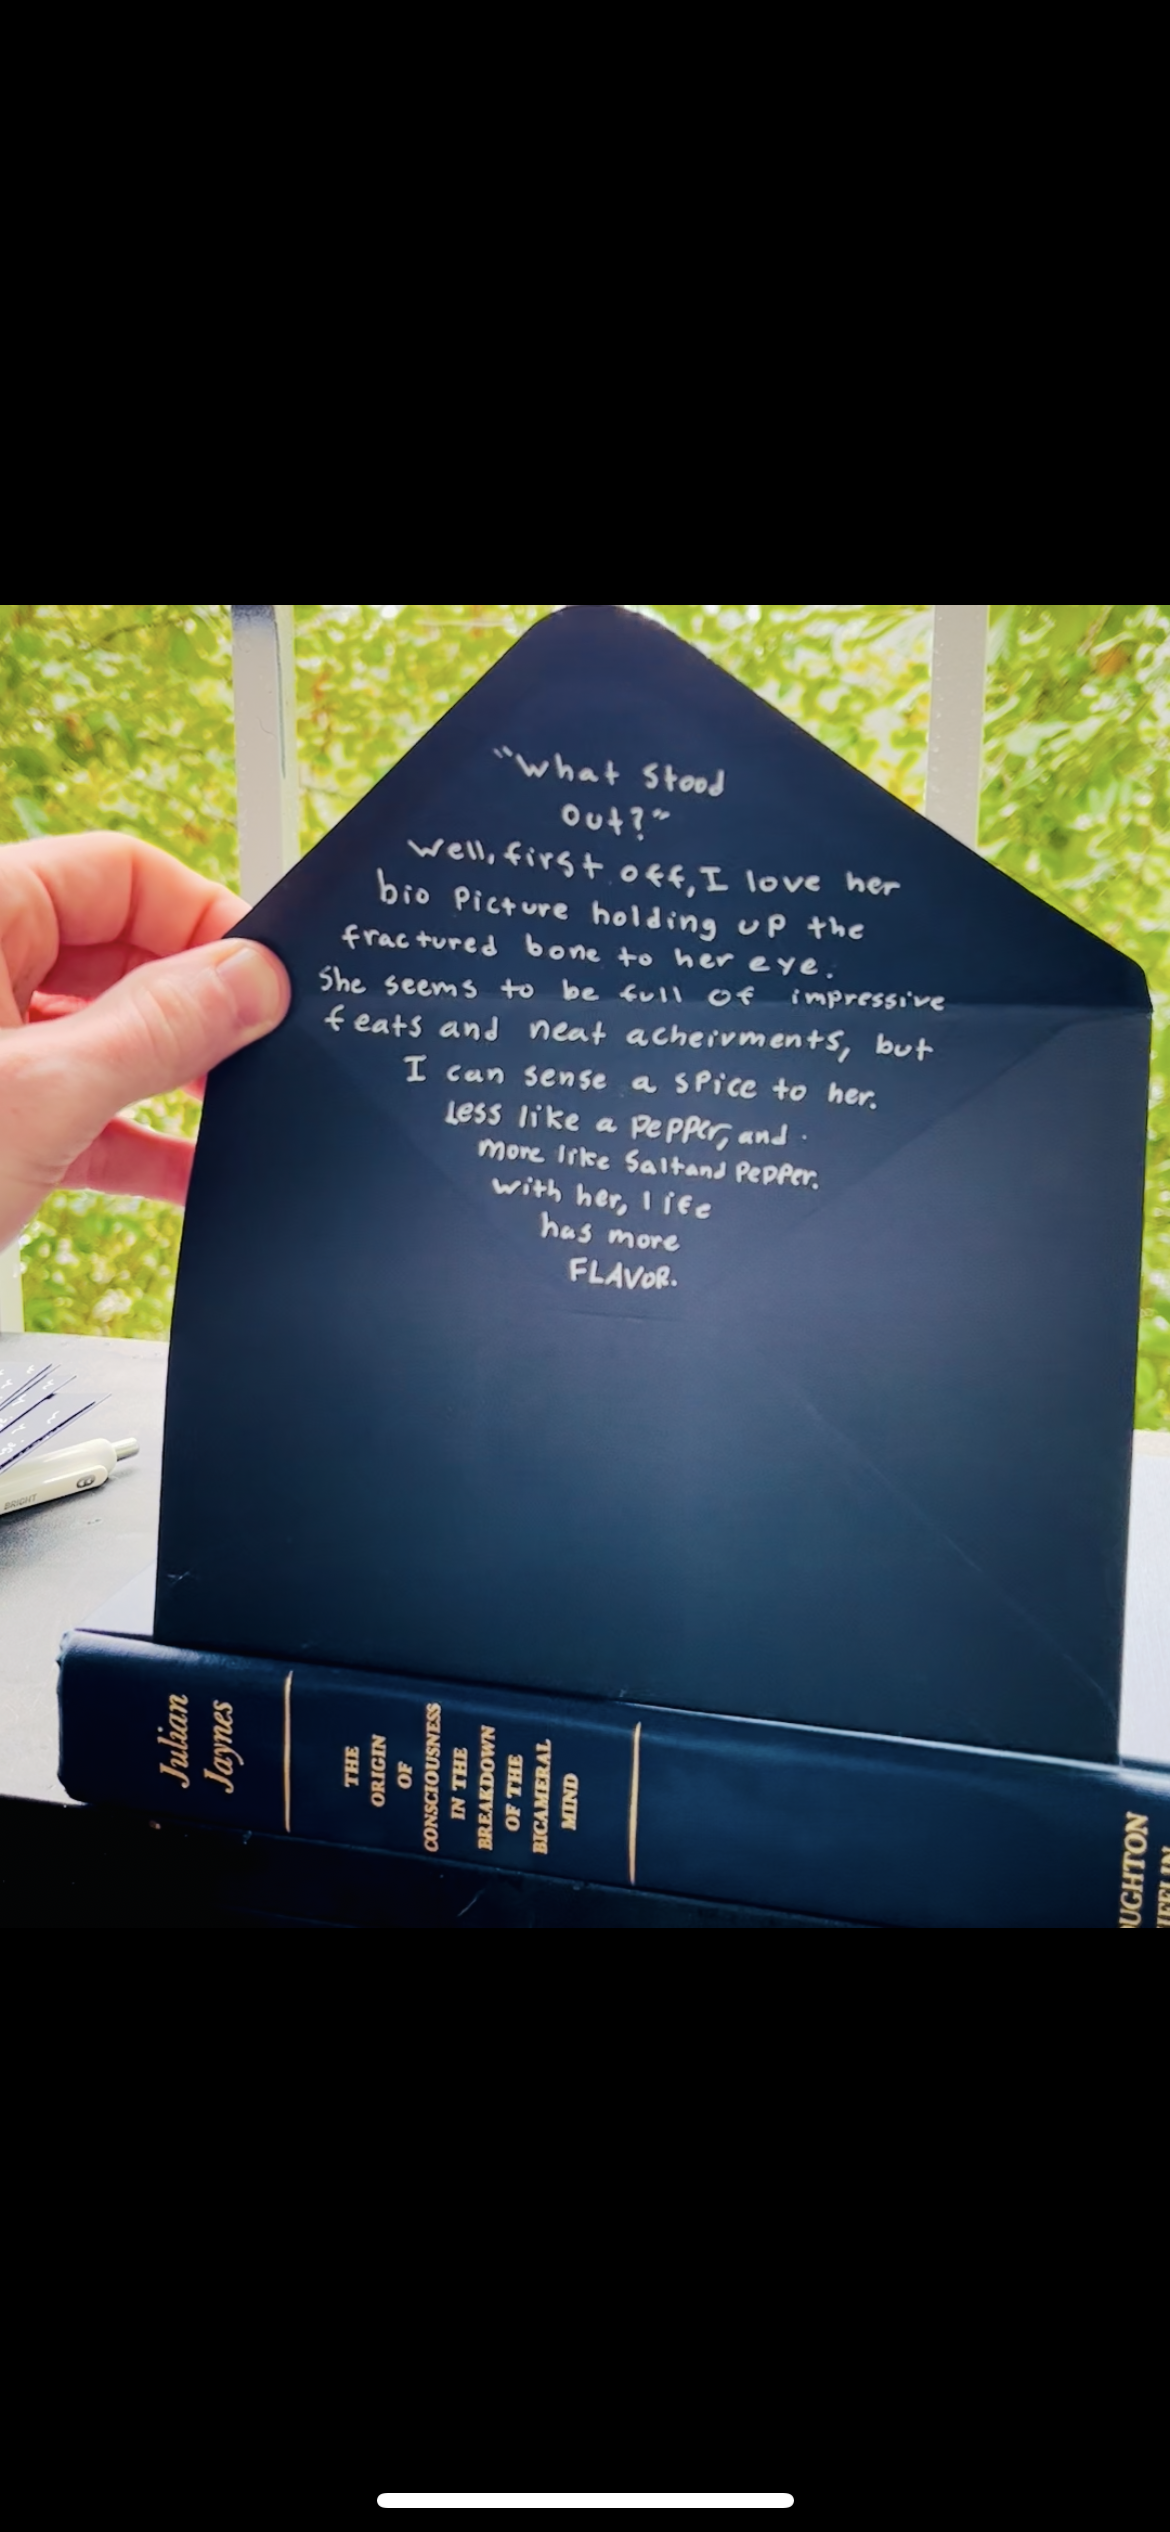 "What Stood
Out?"
Well, first off, I love her
bio picture holding up the
fractured bone to her eye.
She seems to be full of impressive
feats and neat acheivments, but
I can sense a spice to her.
Less like a pepper, and
more like salt and pepper.
With her, life
has more
FLAVOR.
BRIGHT
Julian
Jaynes
THE
ORIGIN
OF
CONSCIOUSNESS
IN THE
BREAKDOWN
OF THE
BICAMERAL
MIND
OUGHTON